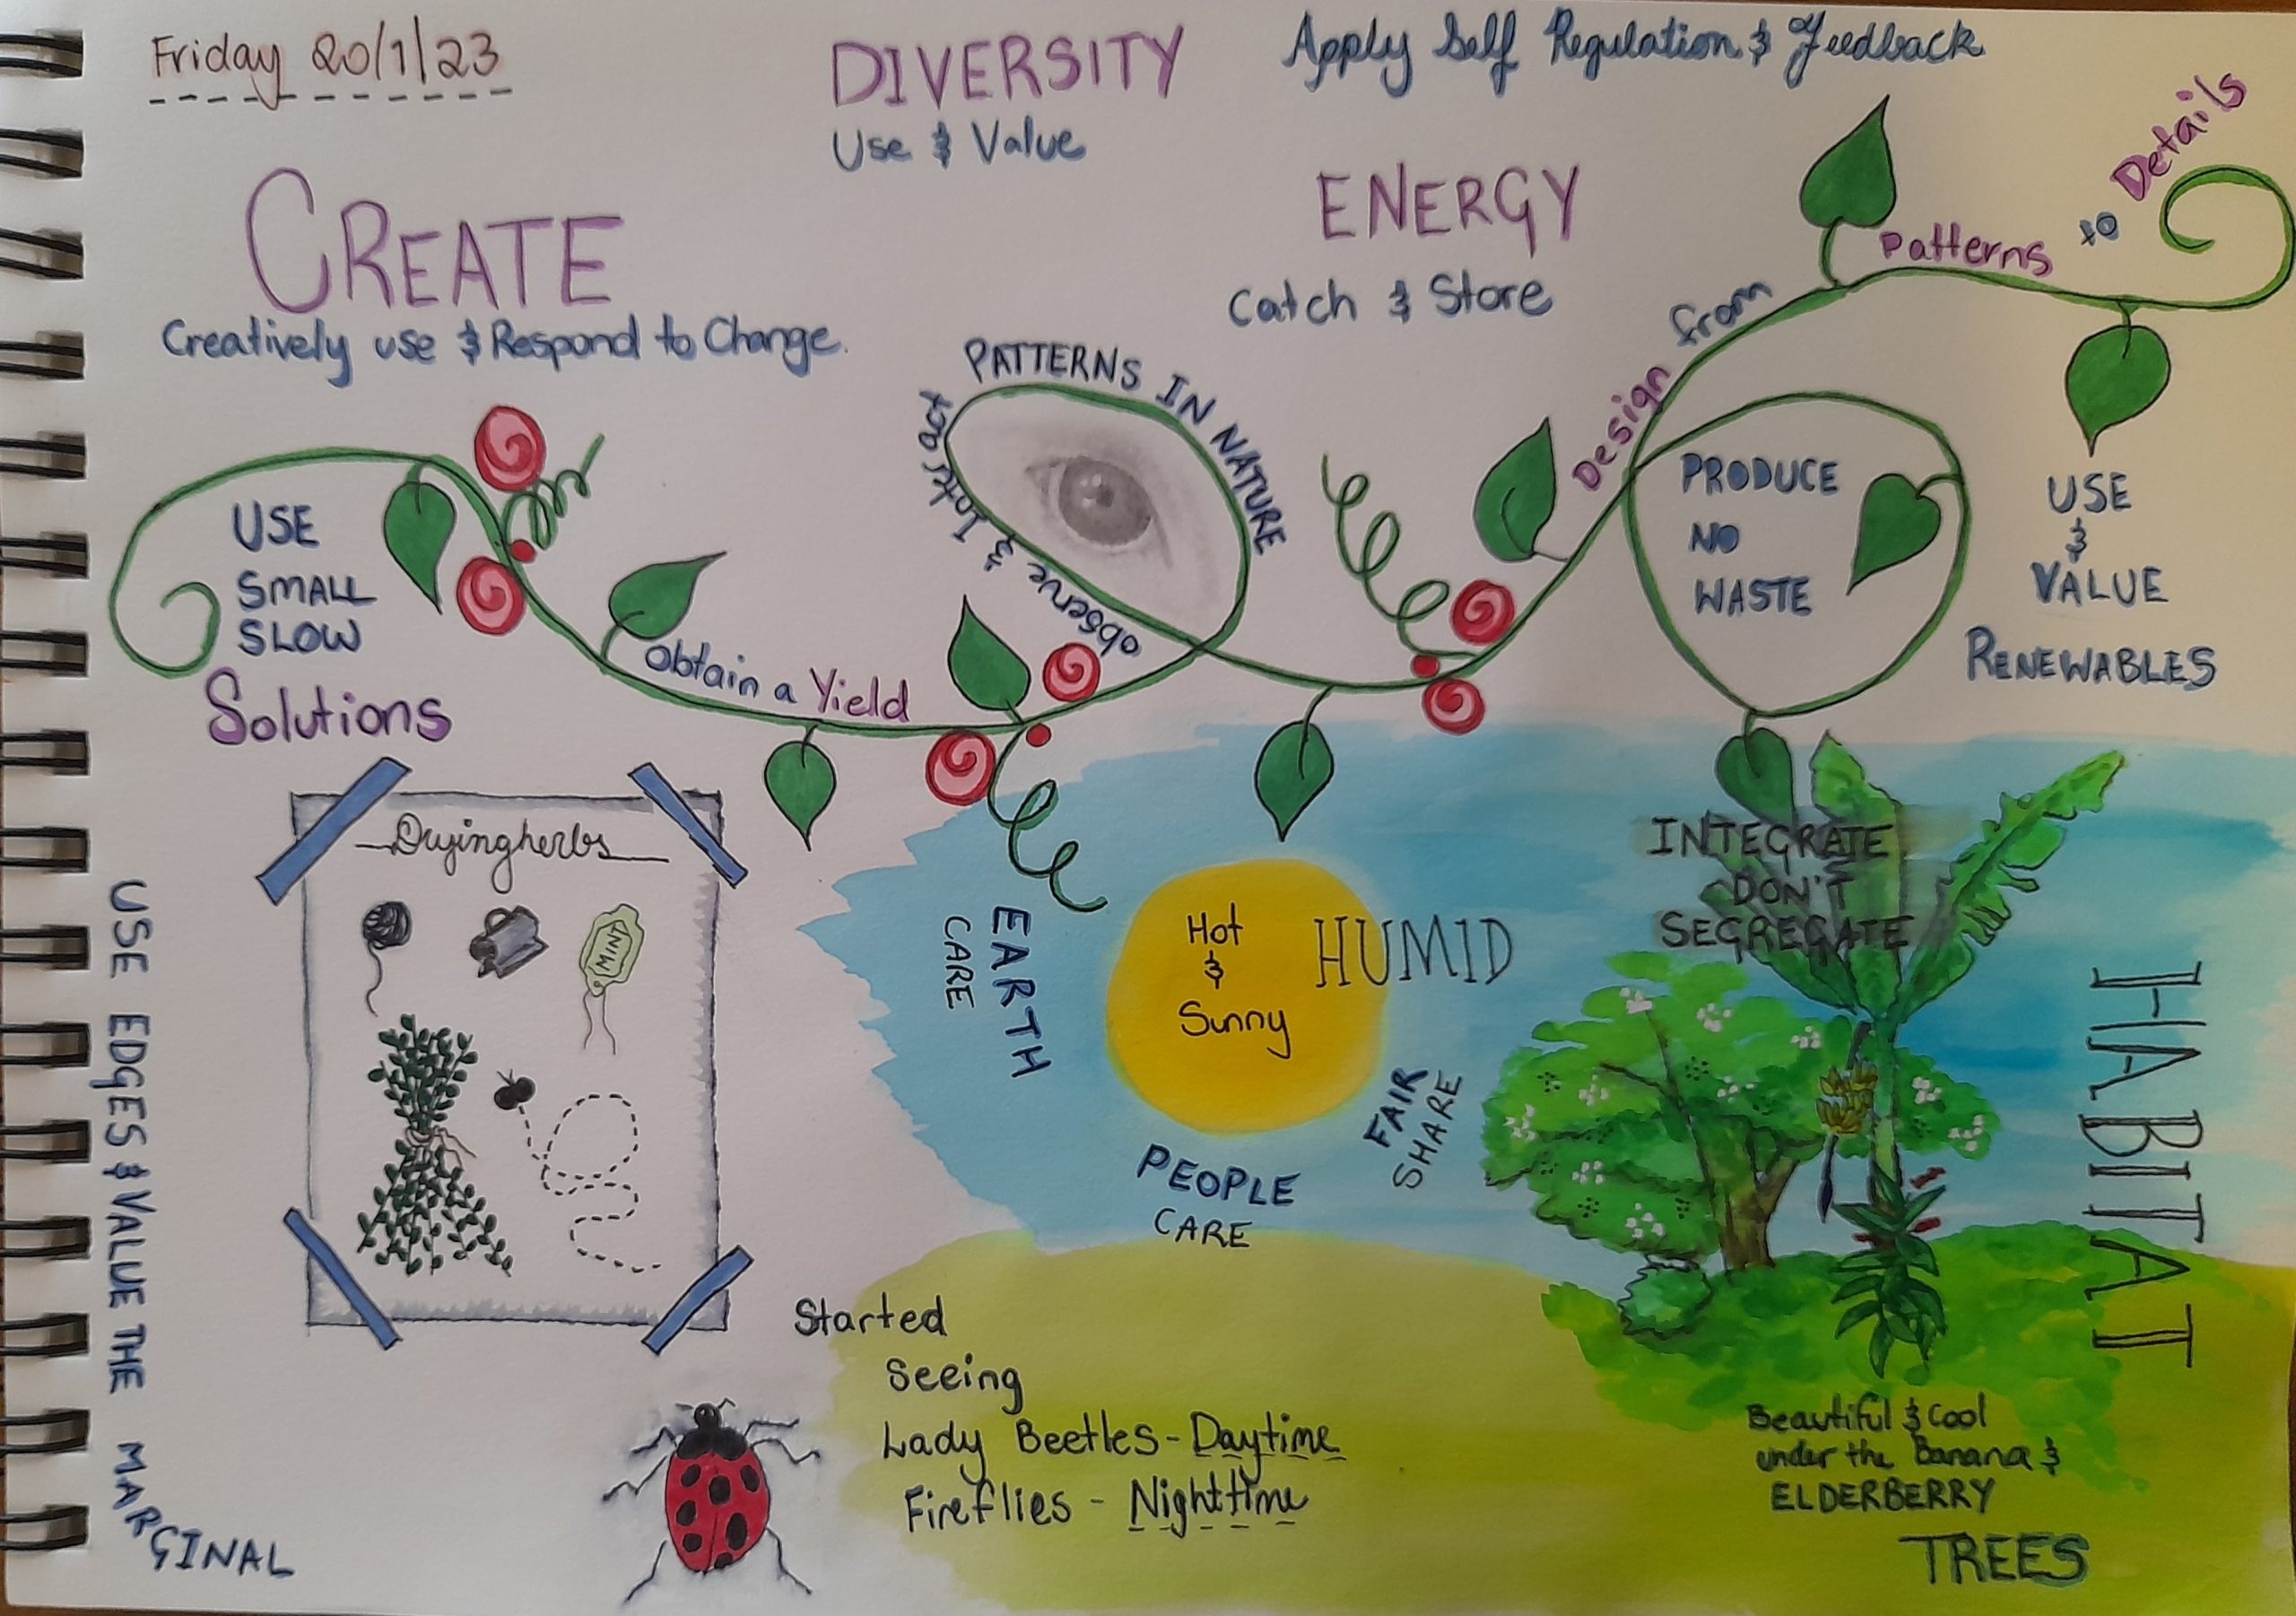 Friday 20/1/23
DIVERSITY
Use & Value
Apply Self Regulation & Feedback
CREATE
Creatively use & Respond to Change.
ENERGY
Catch & Store
Design from Patterns to Details
PATTERNS IN NATURE
observe & Interact
USE
SMALL
SLOW
Solutions
Obtain a Yield
PRODUCE
NO
WASTE
USE
&
VALUE
RENEWABLES
Dryingherbs
MINT
USE EDGES & VALUE THE MARGINAL
EARTH
CARE
Hot
&
Sunny
HUMID
FAIR
SHARE
PEOPLE
CARE
INTEGRATE
DON'T
SEGREGATE
HABITAT
Started
Seeing
Lady Beetles - Daytime
Fireflies - Nighttime
Beautiful & Cool
under the Banana &
ELDERBERRY
TREES